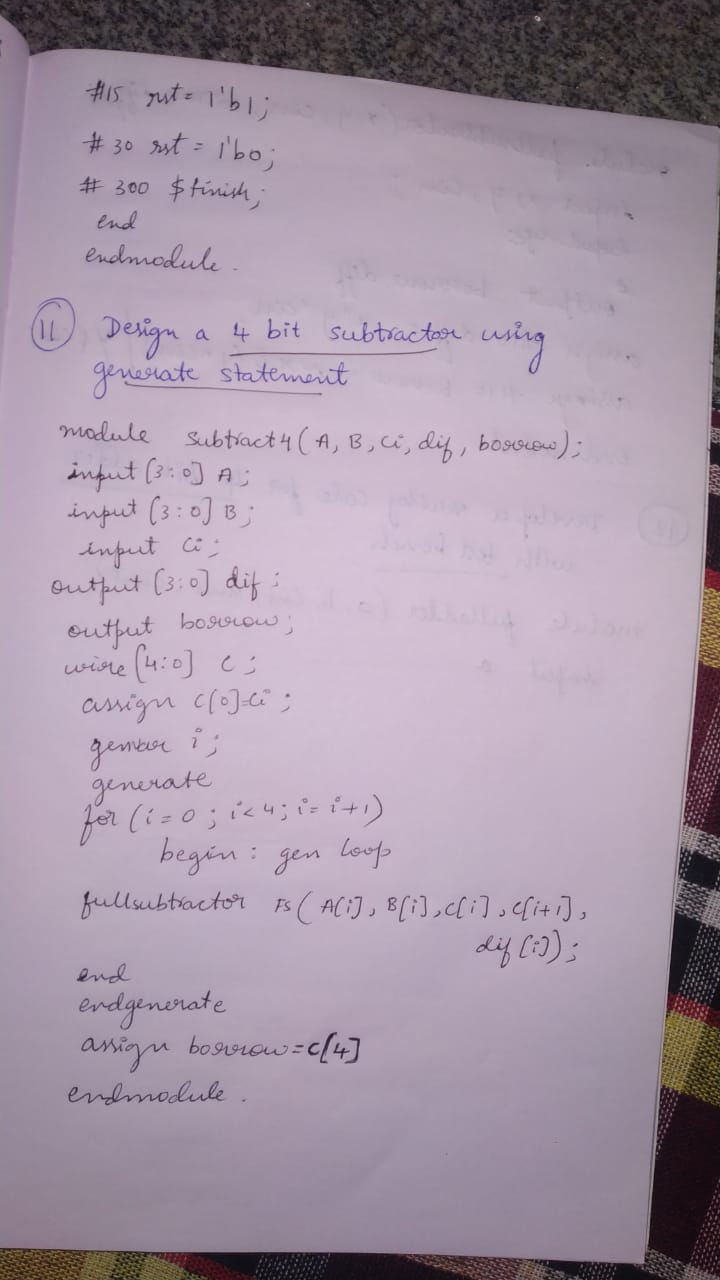 #15 rst = 1'b1;
# 30 rst = 1'b0;
# 300 $finish;
end
endmodule.
11 Design a 4 bit subtractor using
generate statement
module subtract4 (A, B, Ci, dif, borrow);
input [3:0] A;
input [3:0] B;
input Ci;
output [3:0] dif;
output borrow;
wire [4:0] C;
assign C[0]=Ci;
genvar i;
generate
for (i=0; i<4; i=i+1)
begin: gen loop
fullsubtractor FS (A[i], B[i], C[i], C[i+1],
dif[i]);
end
endgenerate
assign borrow=C[4]
endmodule.